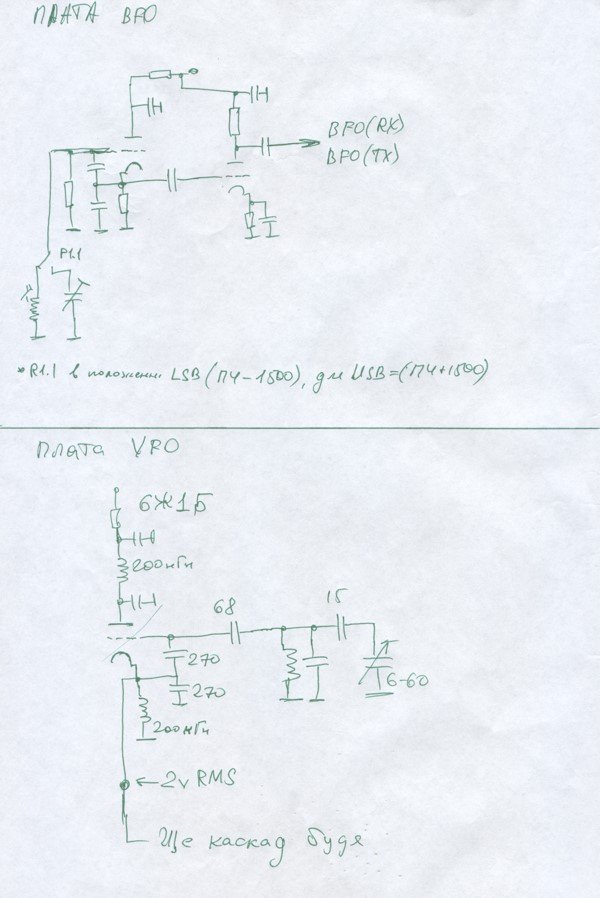 ПЛАТА BFO
BFO(RX)
BFO(TX)
P1.1
* P1.1 в положении LSB (ПЧ-1500), для USB=(ПЧ+1500)
Плата VFO
6Ж1Б
200мкГн
68
15
270
270
6-60
200мкГн
←2v RMS
Ще каскад будя